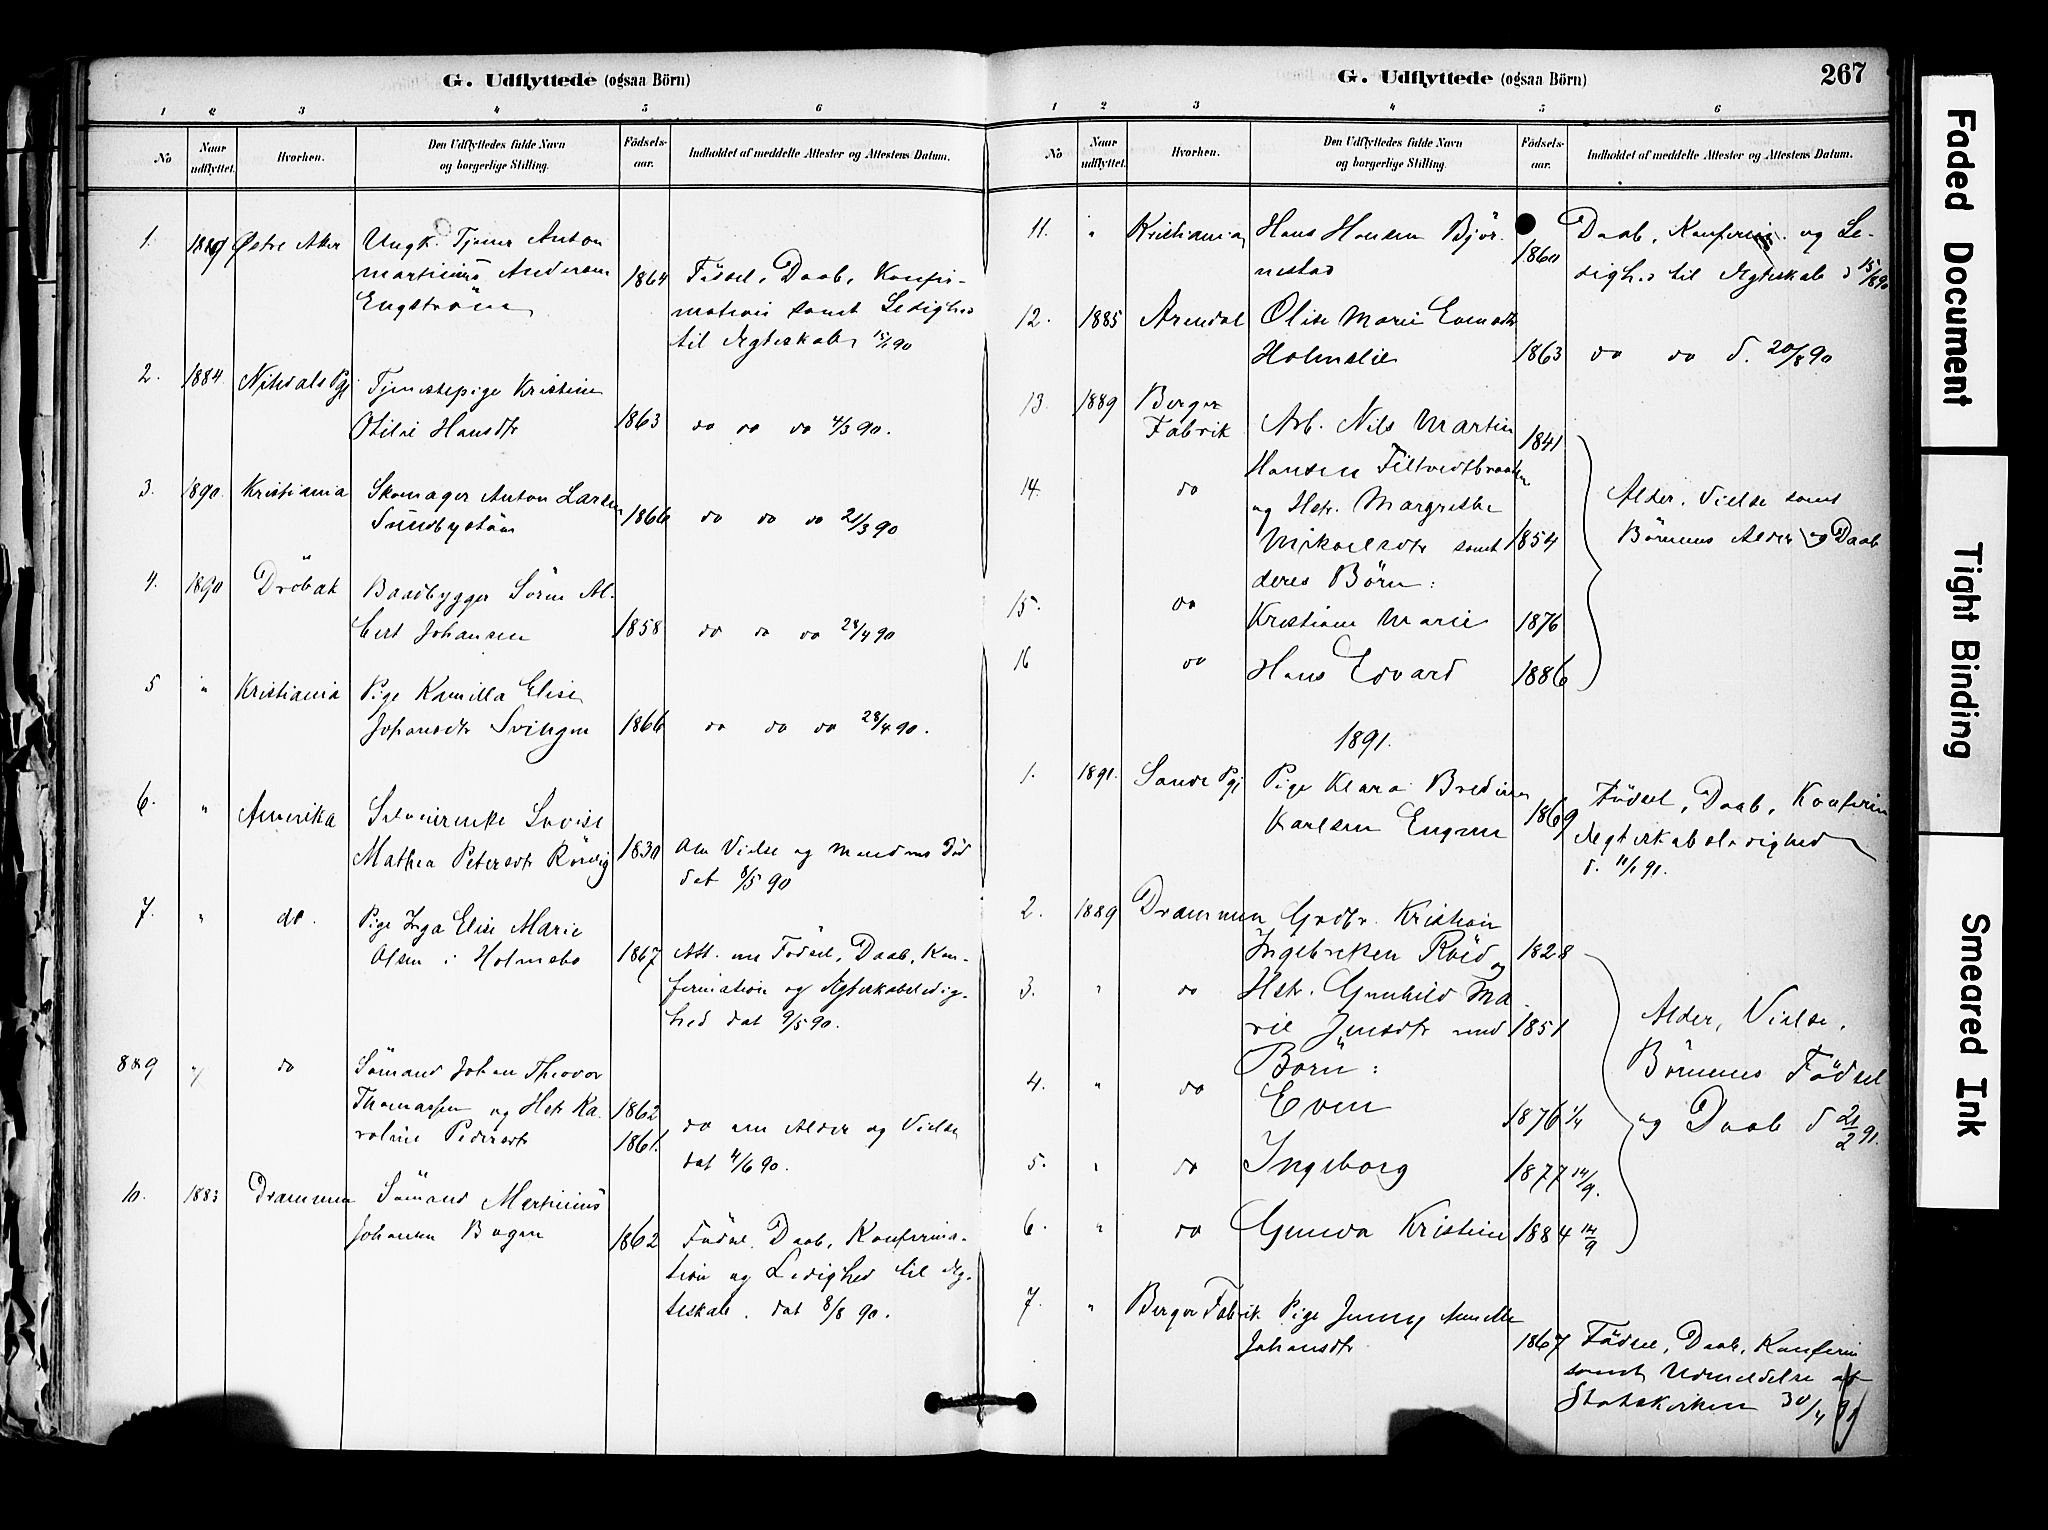 G. Udflyttede (ogsaa Börn)
1 2 3 4 5 6
No
Naar udflyttet.
Hvorhen.
Den Udflyttedes fulde Navn
og borgerlige Stilling.
Födsels-
aar.
Indholdet af meddelte Attester og Attestens Datum.
1. Østre Aker Ungk. Tjener Anton
Martinius Andersen
Engström
1864 Födsel, Daab, Konfir-
mation samt Ledighed
til Ægteskab
2. 1884 Nitedals Pgj. Tjenestepige Kristine
Otilie Hansdtr 1863 do do do 4/3 90.
3. 1890. Kristiania Skomager Anton Larsen
1866 do do do 21/3 90
4. 1890 Dröbak Baadbygger Sören Al-
bert Johansen 1858 do do do 28/4 90
5 " Kristiania Pige Kamilla Elise
Johansdtr Svingen 1866 do do do 28/4 90.
6. " Amerika Lovise
Mathea Petersdtr Rödtvig 1830 Om Vielse og Mandens Död
dat 8/5 90
7. " do. Pige Inga Elise Marie
Olsen i Holmsbo 1867 Att. om Födsel, Daab, Kon-
firmation og Ægteskabsledig-
hed dat 9/5 90.
8 & 9 " do Sömand Johan Theodor
Thomassen og Hstr Ka-
roline Pedersdtr
1862
1861. do om Alder og Vielse
dat 4/6 90.
10. 1883 Drammen Sömand Martinius
Johansen Bogen 1862 Födsel, Daab, Konfirma-
tion og Ledighed til Æg-
teskab. dat 8/8 90.
G. Udflyttede (ogsaa Börn)
267
1 2 3 4 5 6
No
Naar
udflyttet.
Hvorhen.
Den Udflyttedes fulde Navn
og borgerlige Stilling.
Födsels-
aar.
Indholdet af meddelte Attester og Attestens Datum.
11. " Kristiania Hans Hansen Björ-
nestad 1860 Daab, Konfirm. og Le-
dighed til Ægteskab d 15/8 90
12. 1885 Arendal Olise Marie Evensdtr
Holmslie 1863 do do d. 20/8 90
13. 1889 Berger
Fabrik Arb. Nils Martin 1841
Hansen Filtvedtbraaten
14. do og Hstr. Margrethe
Mikaelsdtr samt 1854
deres Börn:
Alder, Vielse samt
Börnenes Alder og Daab
15. do Kristiane Marie 1876
16 do Hans Edvard 1886
1891.
1. 1891. Sande Pgj Pige Klara Bredine
Karlsen Engene 1869 Födsel, Daab, Konfirm
Ægteskabsledighed
d. 11/1 91.
2. 1889 Drammen Grdbr. Kristian
Ingebretsen Röed og 1828
3. " do Hstr. Gunhild Ma-
rie Jensdtr med 1851
Börn:
4. " do Even 1876 1/4
5. " do Ingeborg 1877 14/9.
6. " do Gunda Kristine 1884 12/9
Alder, Vielse,
Börnenes Födsel
og Daab d 21/2 91.
7. " Berger Fabrik Pige Jenny
Johansdtr 1867 Födsel, Daab, Konfirm
samt Udmeldelse af
Statskirken 30/4 91
Faded Document
Tight Binding
Smeared Ink